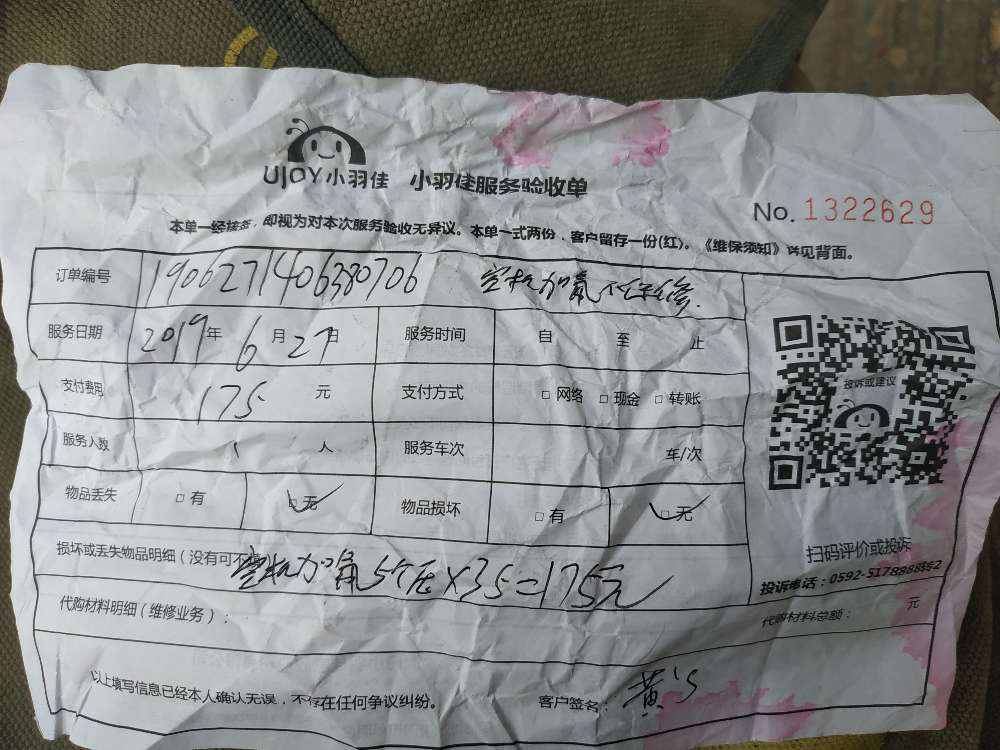 UJOY小羽佳 小羽佳服务验收单
No. 1322629
本单一经接签，即视为对本次服务验收无异议。本单一式两份、客户留存一份(红)。《维保须知》详见背面。
订单编号 1906271406380706 空机加氟不保修.
服务日期 2019年6月27日 服务时间 自 至 止
支付费用 175 元 支付方式 □网络 □现金 □转账
投诉或建议
服务人数 1 人 服务车次 车/次
物品丢失 □有 □无 物品损坏 □有 □无
扫码评价或投诉
损坏或丢失物品明细（没有可不 空机加氟5个压×35=175元
投诉电话：0592-5178888转2
代购材料明细（维修业务）： 代购材料总额： 元
以上填写信息已经本人确认无误，不存在任何争议纠纷。 客户签名： 黄's